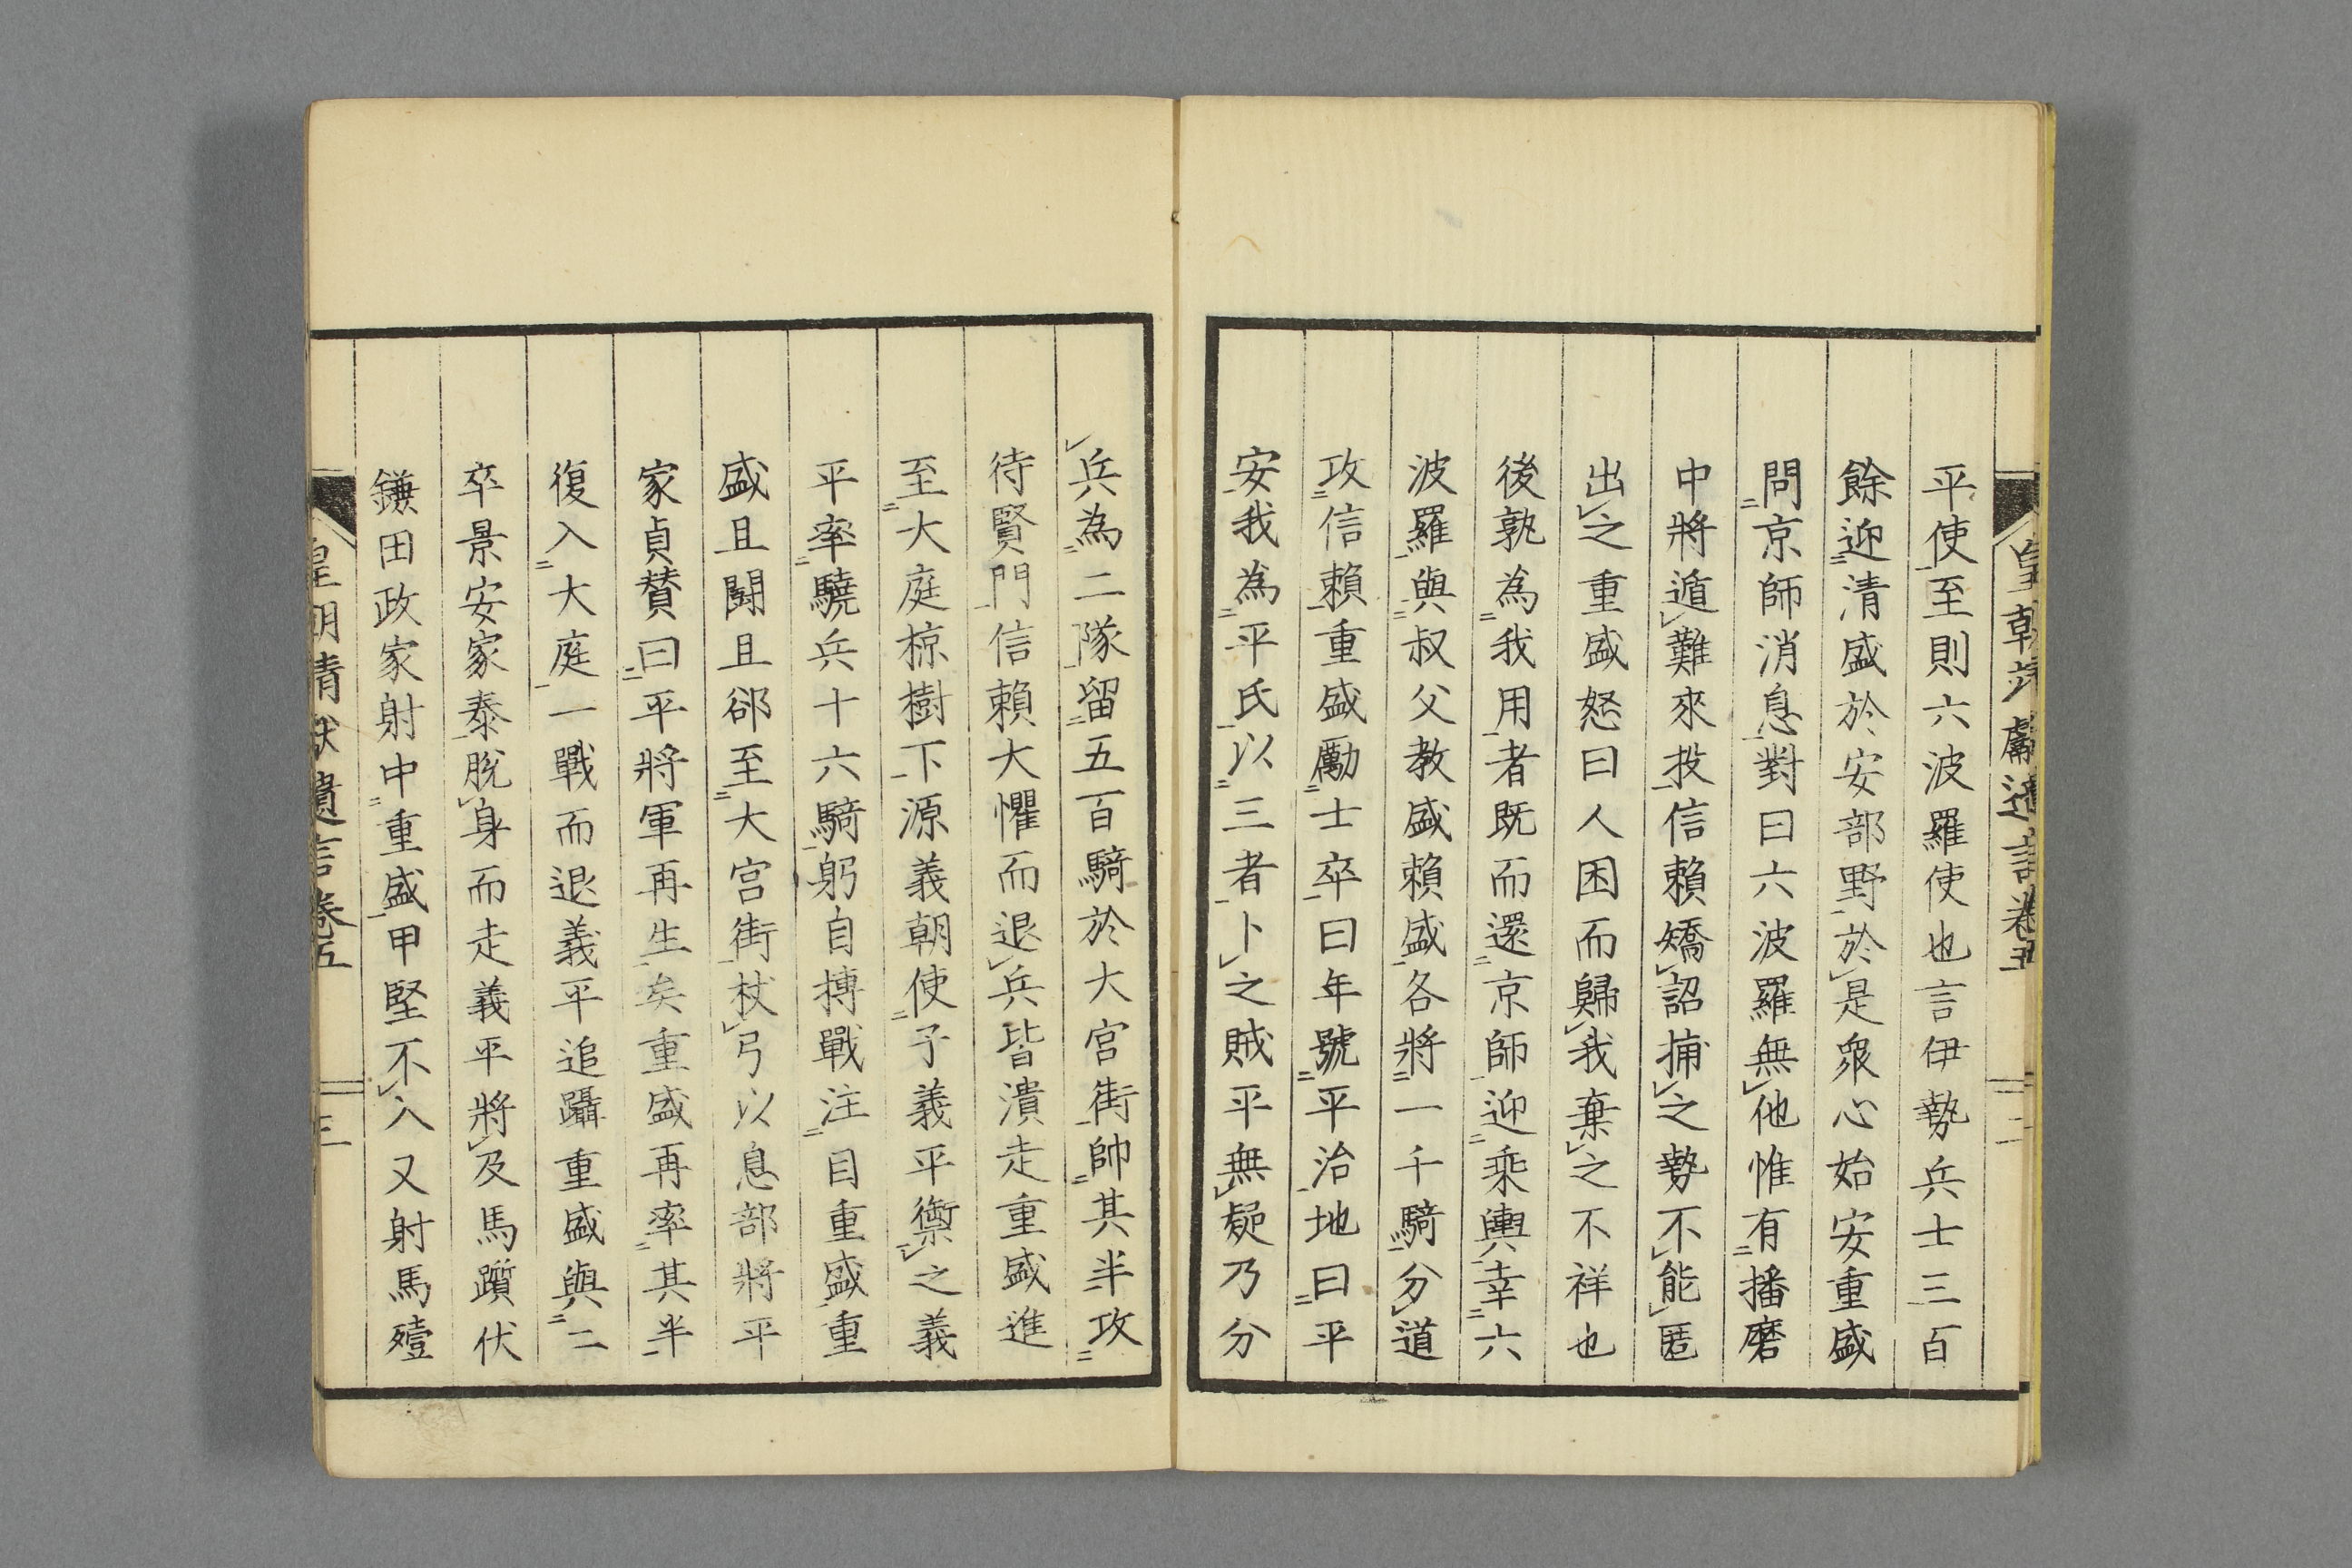 平使至則六波羅使也言伊勢兵士三百
餘迎清盛於安部野於是衆心始安重盛
問京師消息對曰六波羅無他惟有播磨
中將遁難來投信賴矯詔捕之勢不能匿
出之重盛怒曰人困而歸我棄之不祥也
後孰為我用者既而還京師迎乘輿幸六
波羅與叔父教盛賴盛各將一千騎分道
攻信賴重盛勵士卒曰年號平治地曰平
安我為平氏以三者卜之賊平無疑乃分
兵為二隊留五百騎於大宮街帥其半攻
待賢門信賴大懼而退兵皆潰走重盛進
至大庭椋樹下源義朝使子義平禦之義
平率驍兵十六騎躬自搏戰注目重盛重
盛且鬪且郤至大宮街杖弓以息部將平
家貞賛曰平將軍再生矣重盛再率其半
復入大庭一戰而退義平追躡重盛與二
卒景安家泰脫身而走義平將及馬躓伏
鎌田政家射中重盛甲堅不入又射馬殪
皇朝靖獻遺言卷五
三